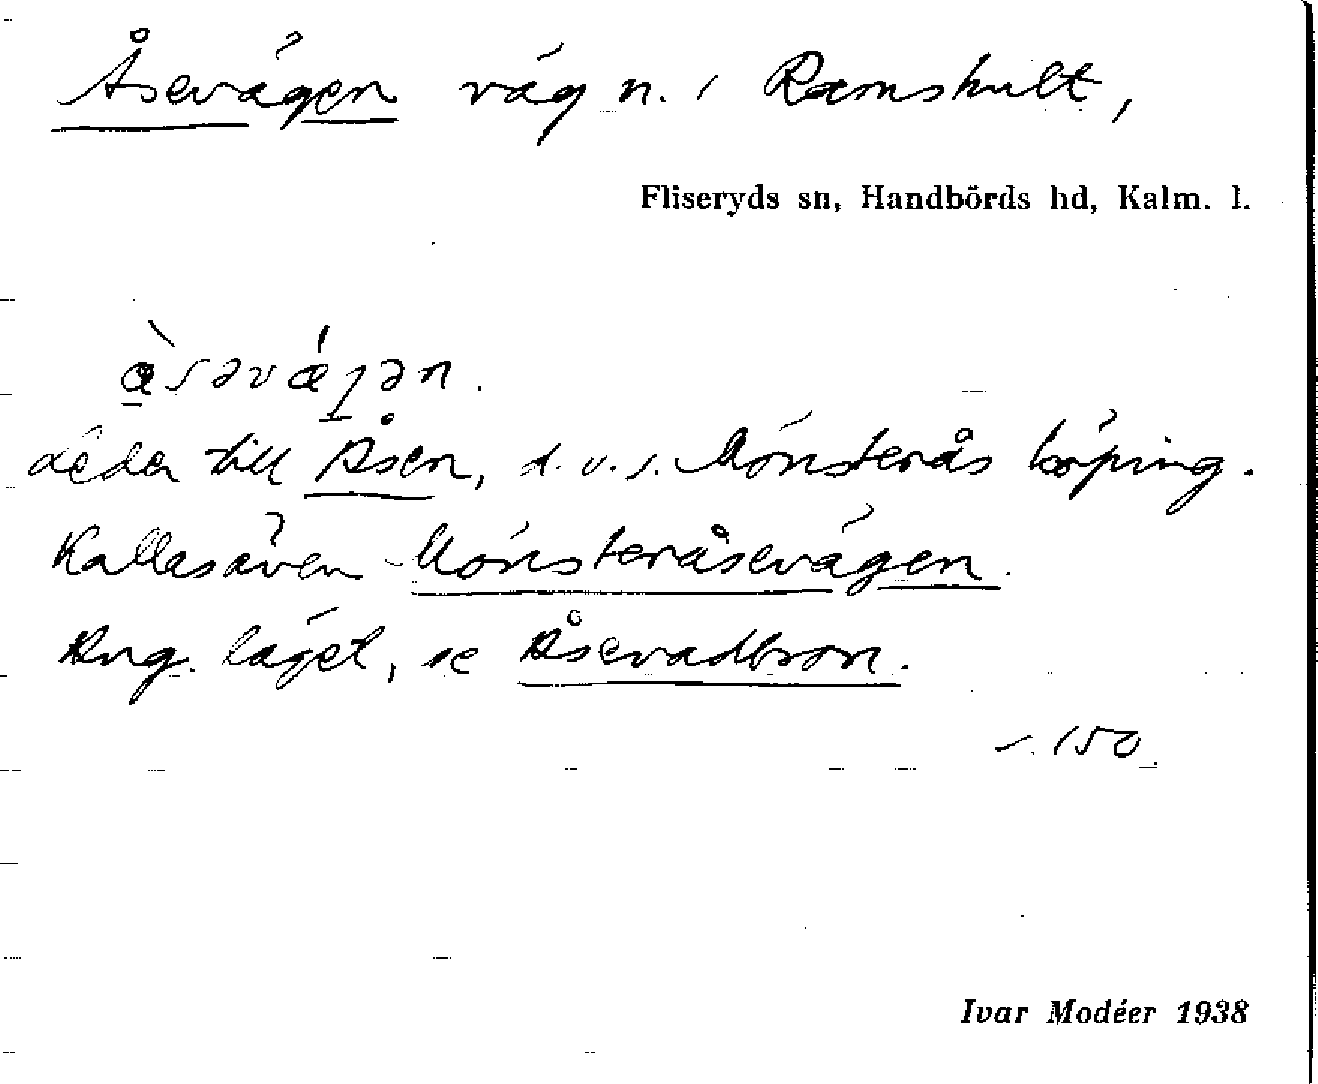 Åsevägen väg n. i Ramshult,
Fliseryds sn, Handbörds hd, Kalm. l.
leder till Åsen, d.v.s. Mönsterås köping.
Kallas även Mönsteråsevägen.
Ang. läget, se Åsevadbron.
150
Ivar Modéer 1938